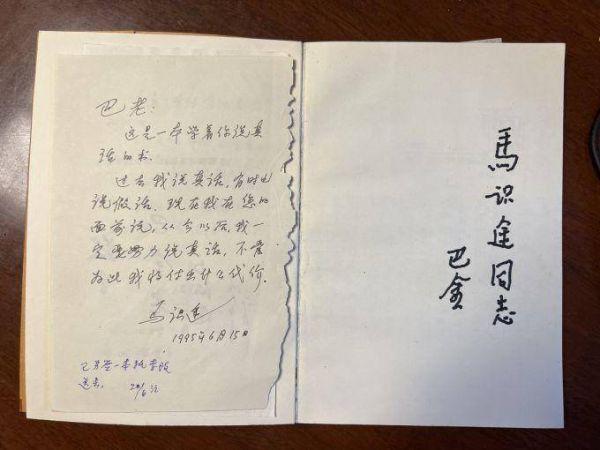 巴老：
这是一本学着你说真
话的书。
过去我说真话，有时也
说假话，现在我在您的
面前说，从今以后，我一
定要努力说真话，不管
为此我将付出什么代价。
马识途
1995年6月15日
一本
送去。
馬识途同志
巴金